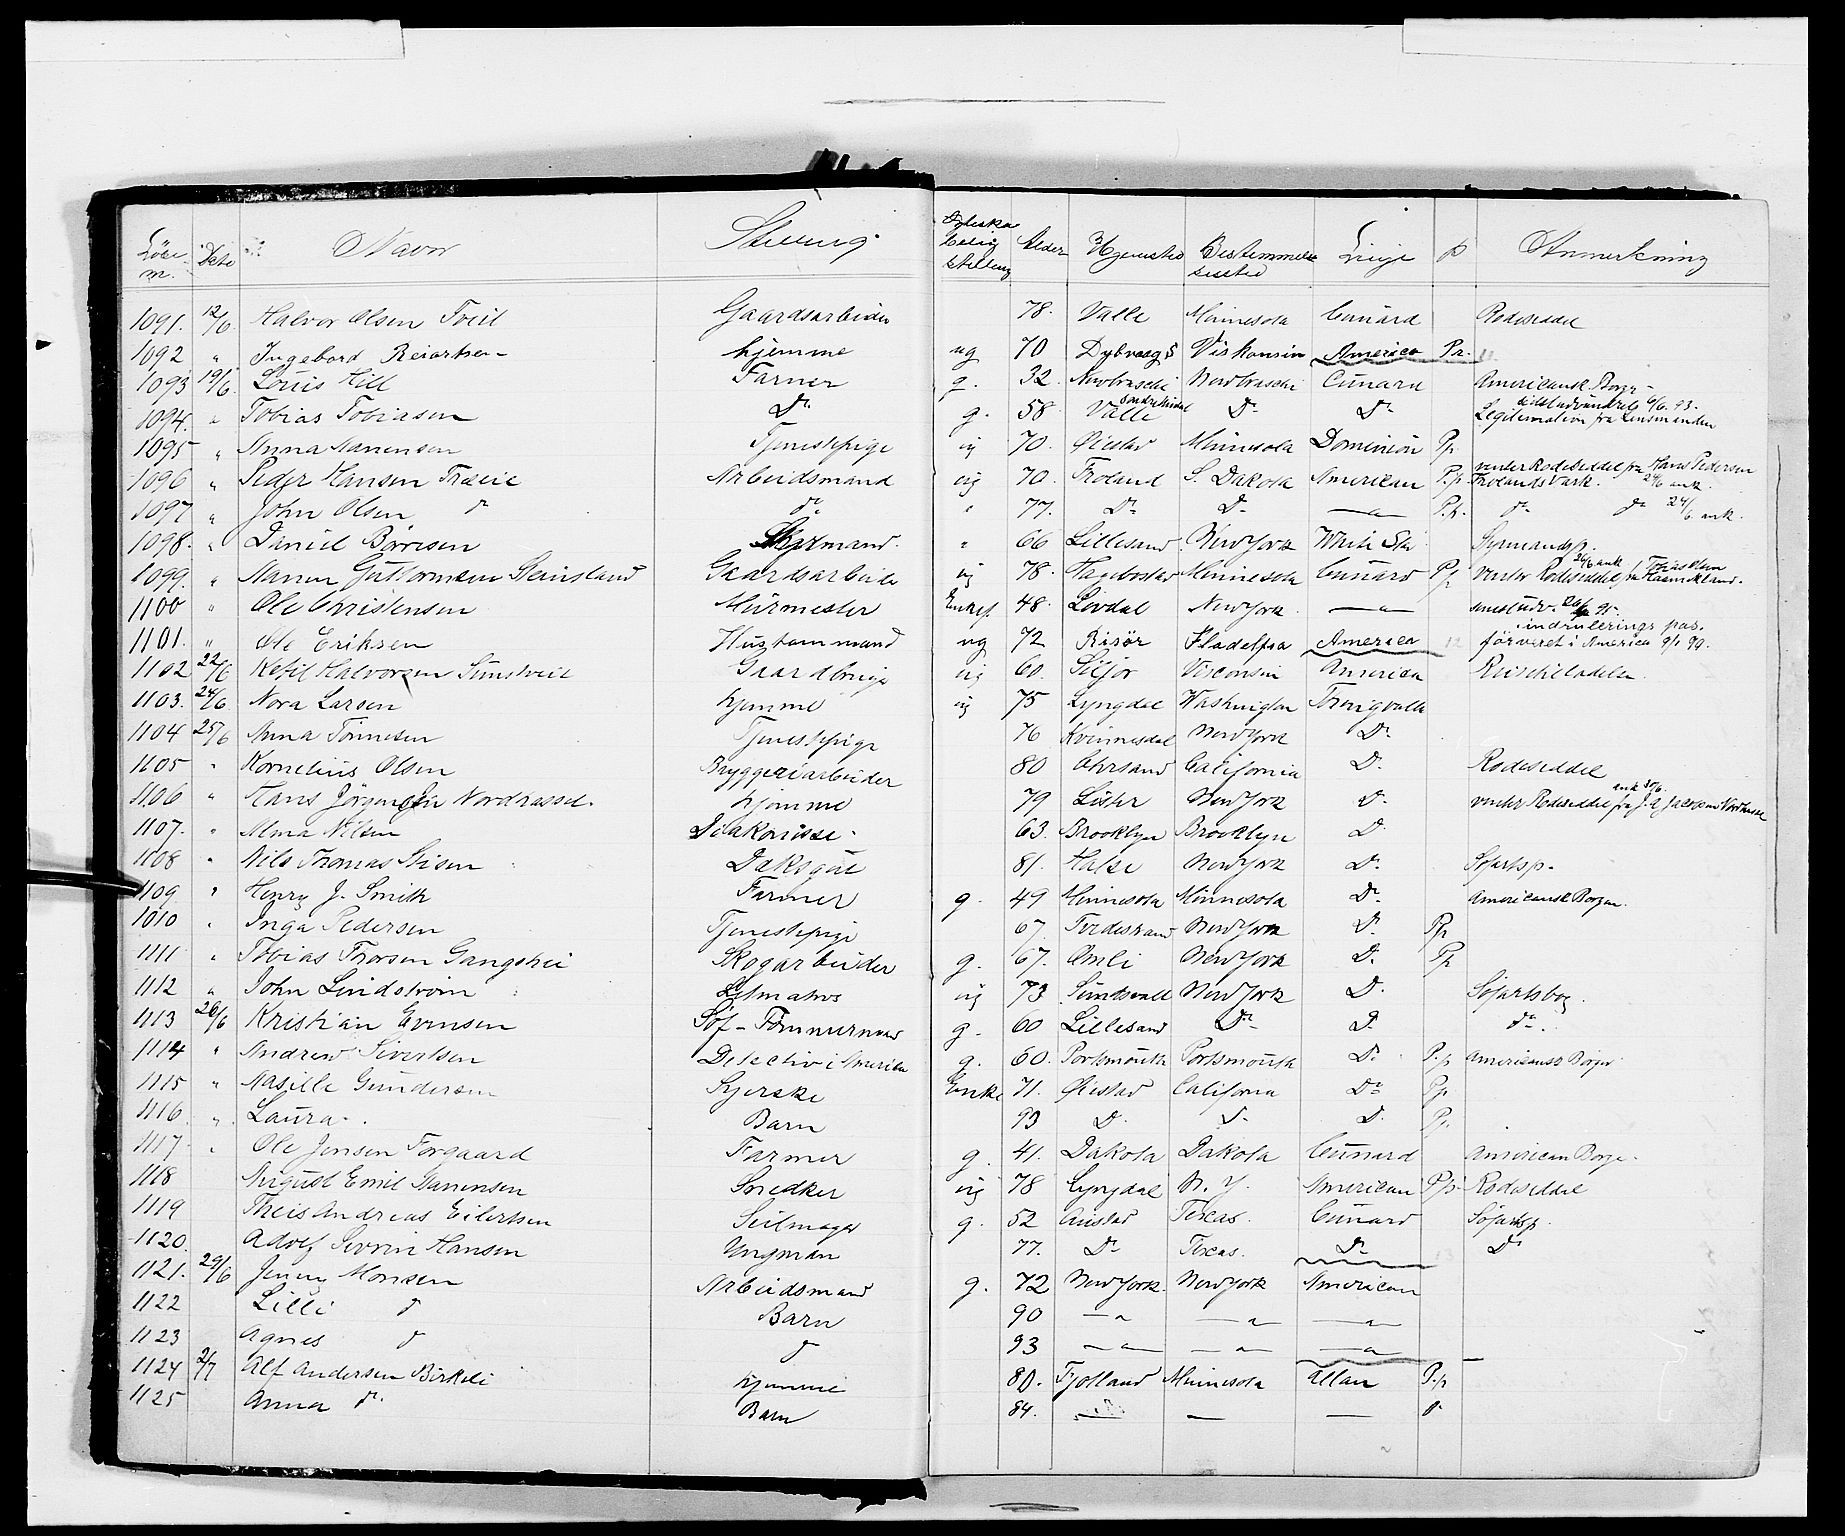 Löbe nr. Date Navn Stilling Ægteskabelig stilling Alder Hjemsted Bestemmelsessted Linje P Anmerkning
1091. 12/6. Halvor Olsen Tveit Gaardsarbeider 78. Valle Minnesota Cunard Rodeseddel
1092 " Ingebord Reiartsen hjemme ug 70 Dybvaag S Viskonsin America Pr.
1093 19/6. Louis Hill Farmer g. 32. Nordbraschi Nordbraschi Cunard Americansk Borger
1094. " Tobias Tobiasen Do g. 58. Valle Do Do sidst udvandrede 6/6. 93. Legitimation fra Lensmanden
1095 " Anna Nanensen Tjenestepige ug 70. Øiestad Minnesota Dominion Pp.
1096 " Peder Hansen Arbeidsmand ug 70. Froland S. Dakota American P.p venter Rodeseddel fra Hans Pedersen Frolands Værk. 24/6 ank.
1097 " John Olsen do do " 77. Do Do — " — P.p. do do 24/6 ank.
1098. " Daniel Børresen Sjømand. " 66 Lillesand New York White Star Sømandsp.
1099. " Nanen Guttormsen Steinsland Gaardsarbeider ug 78. Hægebostad Minnesota Cunard P.p venter Rodeseddel fra 26/6 ank
1100 " Ole Christensen Mürmester Enkef. 48. Lovdal New York — " — senest udv. 95.
1101. " Ole Eriksen Hustømmermand ug 72 Risør Fladelfia America indrulerings pas. før været i America 9/1 99.
1102 22/6 Ketil Halvorsen Sunstveit Gaardbruger ug 60. Siljor Visconsin American
1103. 24/6. Nora Larsen hjemme ug 75 Lyngdal Washington Thingvalla
1104 25/6 Anna Tönnesen Tjenestepige 76 Kvinnesdal New York Do
1105 " Kornelius Olsen Bryggeriarbeider 80 Chrsand California Do Rodeseddel
1106 " Hans Jörgensen Nordhassel. hjemme 79 Lister New York Do venter Rodeseddel fra J. E. Jacobsen Nordhassel ank 30/6.
1107. " Alma Nilsen Diakonisse 63. Brooklyn Brooklyn Do
1108 " Nils Thomas Stisen Daksgut 81. Halse New York Do Söfartsp.
1109 " Henry J. Smith Farmer g. 49 Minnesota Minnesota Do Americansk Borger.
1010 " Inga Pedersen Tjenestepige 67. Tvedestrand New York Do Pp.
1111 " Tobias Thorsen Gangshei Skogarbeider g. 67. Omli New York Do Pp
1112 " John Lindstrøm Letmatros ug 73 Sundsvall New York Do Söfartsbog.
1113 26/6 Kristian Evensen Söf-Tömmermand g. 60 Lillesand Do Do do.
1114 " Andrew Sivertsen Detectiv i America g. 60. Portsmouth Portsmouth Do P.p americansk Borger
1115 " Nasille Gundersen Syerske Enke 71. Øiestad California Do Pp.
1116. " Laura " Barn 93 Do Do Do Pp.
1117 " Ole Jensen Forgaard Farmer g. 41. Dakota Dakota Cunard American Borger
1118 August Emil Nanensen Snedker ug 78 Lyngdal N. Y. American P.p. Rodeseddel
1119 Theis Andreas Eilertsen Seilmager g. 52 Austad Texas. Cunard Söfartsp.
1120. Adolf Severin Hansen Ungman 77. Do Texas. Do Do
1121. 29/6 Jenny Monsen Arbeidsmand g. 72 New York. New York American
1122 Lilli do Barn 90 — " — " — " —
1123 Agnes do do 93 — " — " — " —
1124 2/7 Alf Andersen Birkeli hjemme 80. Fjotland Minnesota Allan P.p
1125 Anna do Barn 84. — — — do